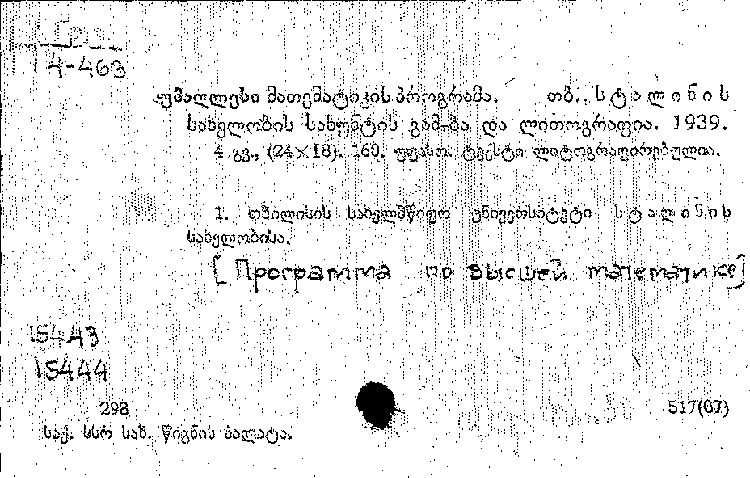 4-463
უმაღლესი მათემატიკის პროგრამა. თბ., სტალინის
სახელობის სახუნტის გამ-ბა და ლითოგრაფია. 1939.
4 გვ., (24×18). 160. უფასო. ტექსტი ლიტოგრაფირებულია.
1. თბილისის სახელმწიფო უნივერსიტეტი სტალინის
სახელობისა.
[Программа по высшей математике]
15443
15444
298 517(07)
საქ. სსრ სახ. წიგნის პალატა.